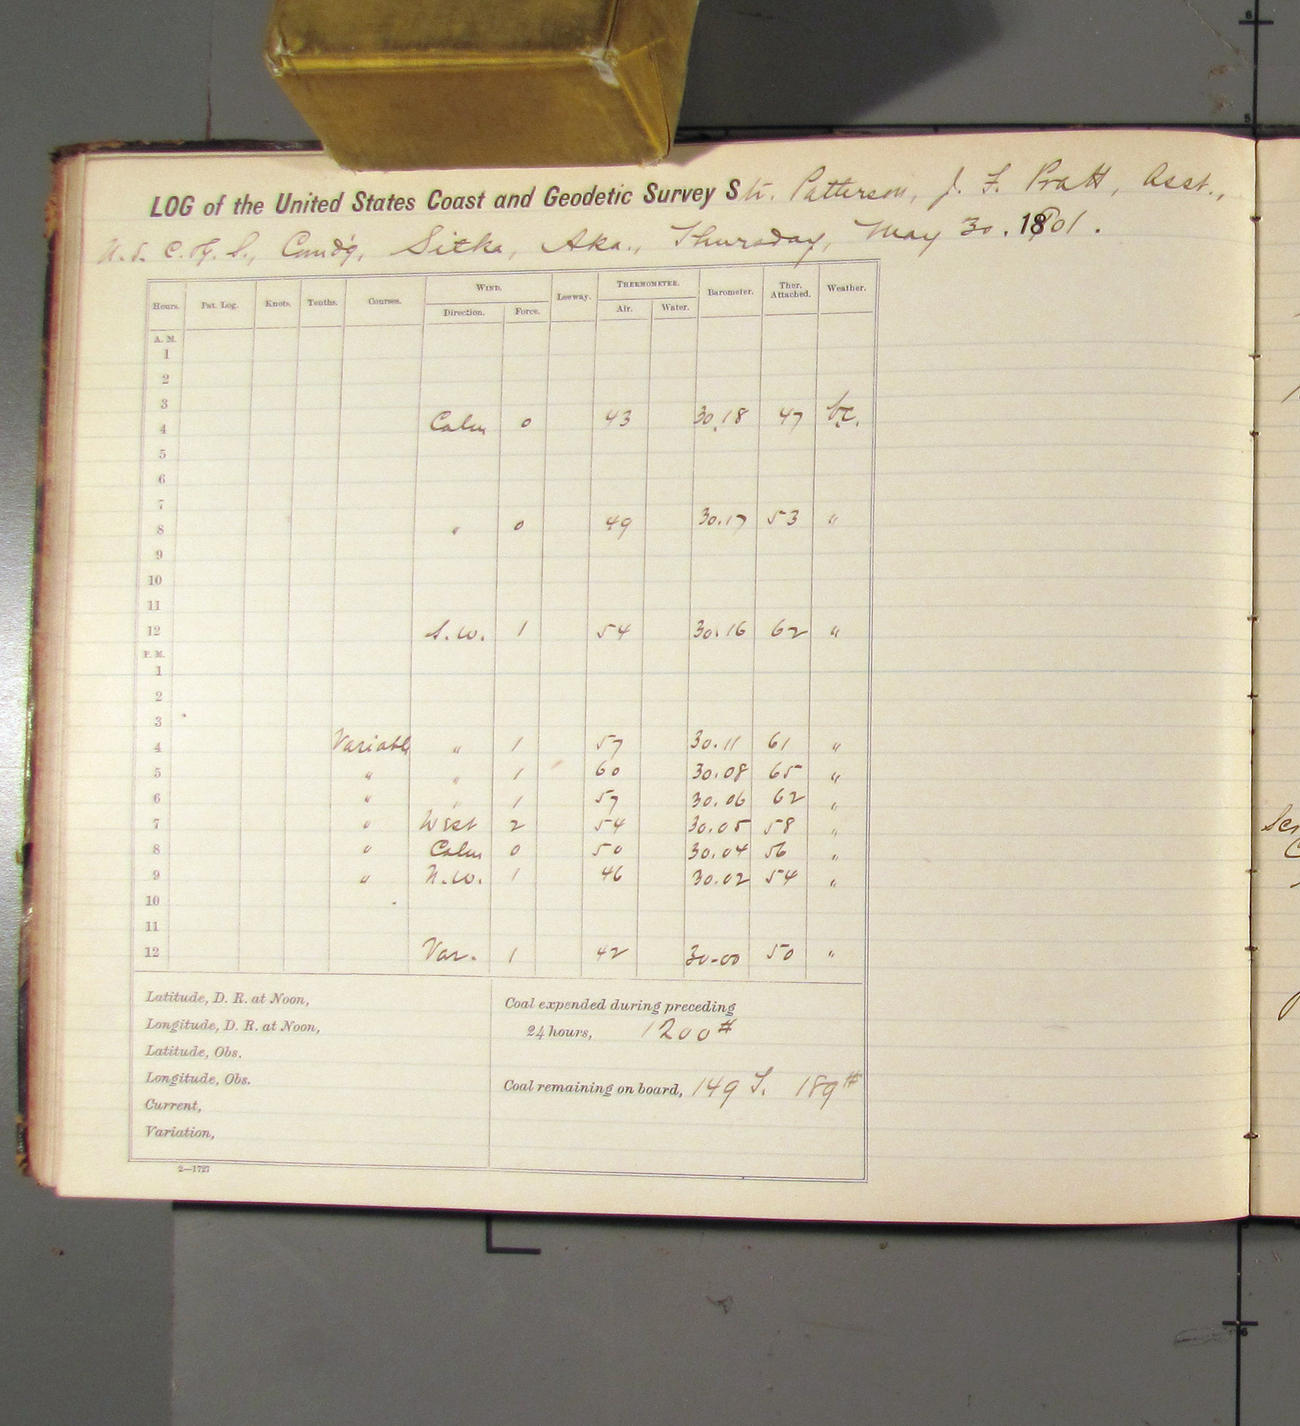 LOG of the United States Coast and Geodetic Survey Str. Patterson, J. F. Pratt, Asst.,
U. S. C. & G. S., Comd'g, Sitka, Aka., Thursday, May 30. 1901.
Hours. Pat. Log. Knots. Tenths. Courses. WIND. Leeway. THERMOMETER. Barometer. Ther. Attached. Weather.
Direction. Force. Air. Water.
A. M.
1
2
3
4 Calm 0 43 30.18 47 bc.
5
6
7
8 " 0 49 30.17 53 "
9
10
11
12 S.W. 1 54 30.16 62 "
P. M.
1
2
3
4 Variable " 1 57 30.11 61 "
5 " " 1 60 30.08 65 "
6 " " 1 57 30.06 62 "
7 " West 2 54 30.05 58 "
8 " Calm 0 50 30.04 56 "
9 " N.W. 1 46 30.02 54 "
10
11
12 Var. 1 42 30-00 50 "
Latitude, D. R. at Noon,
Longitude, D. R. at Noon,
Latitude, Obs.
Longitude, Obs.
Current,
Variation,
Coal expended during preceding
24 hours, 1200#
Coal remaining on board, 149 T. 189#
2—1727